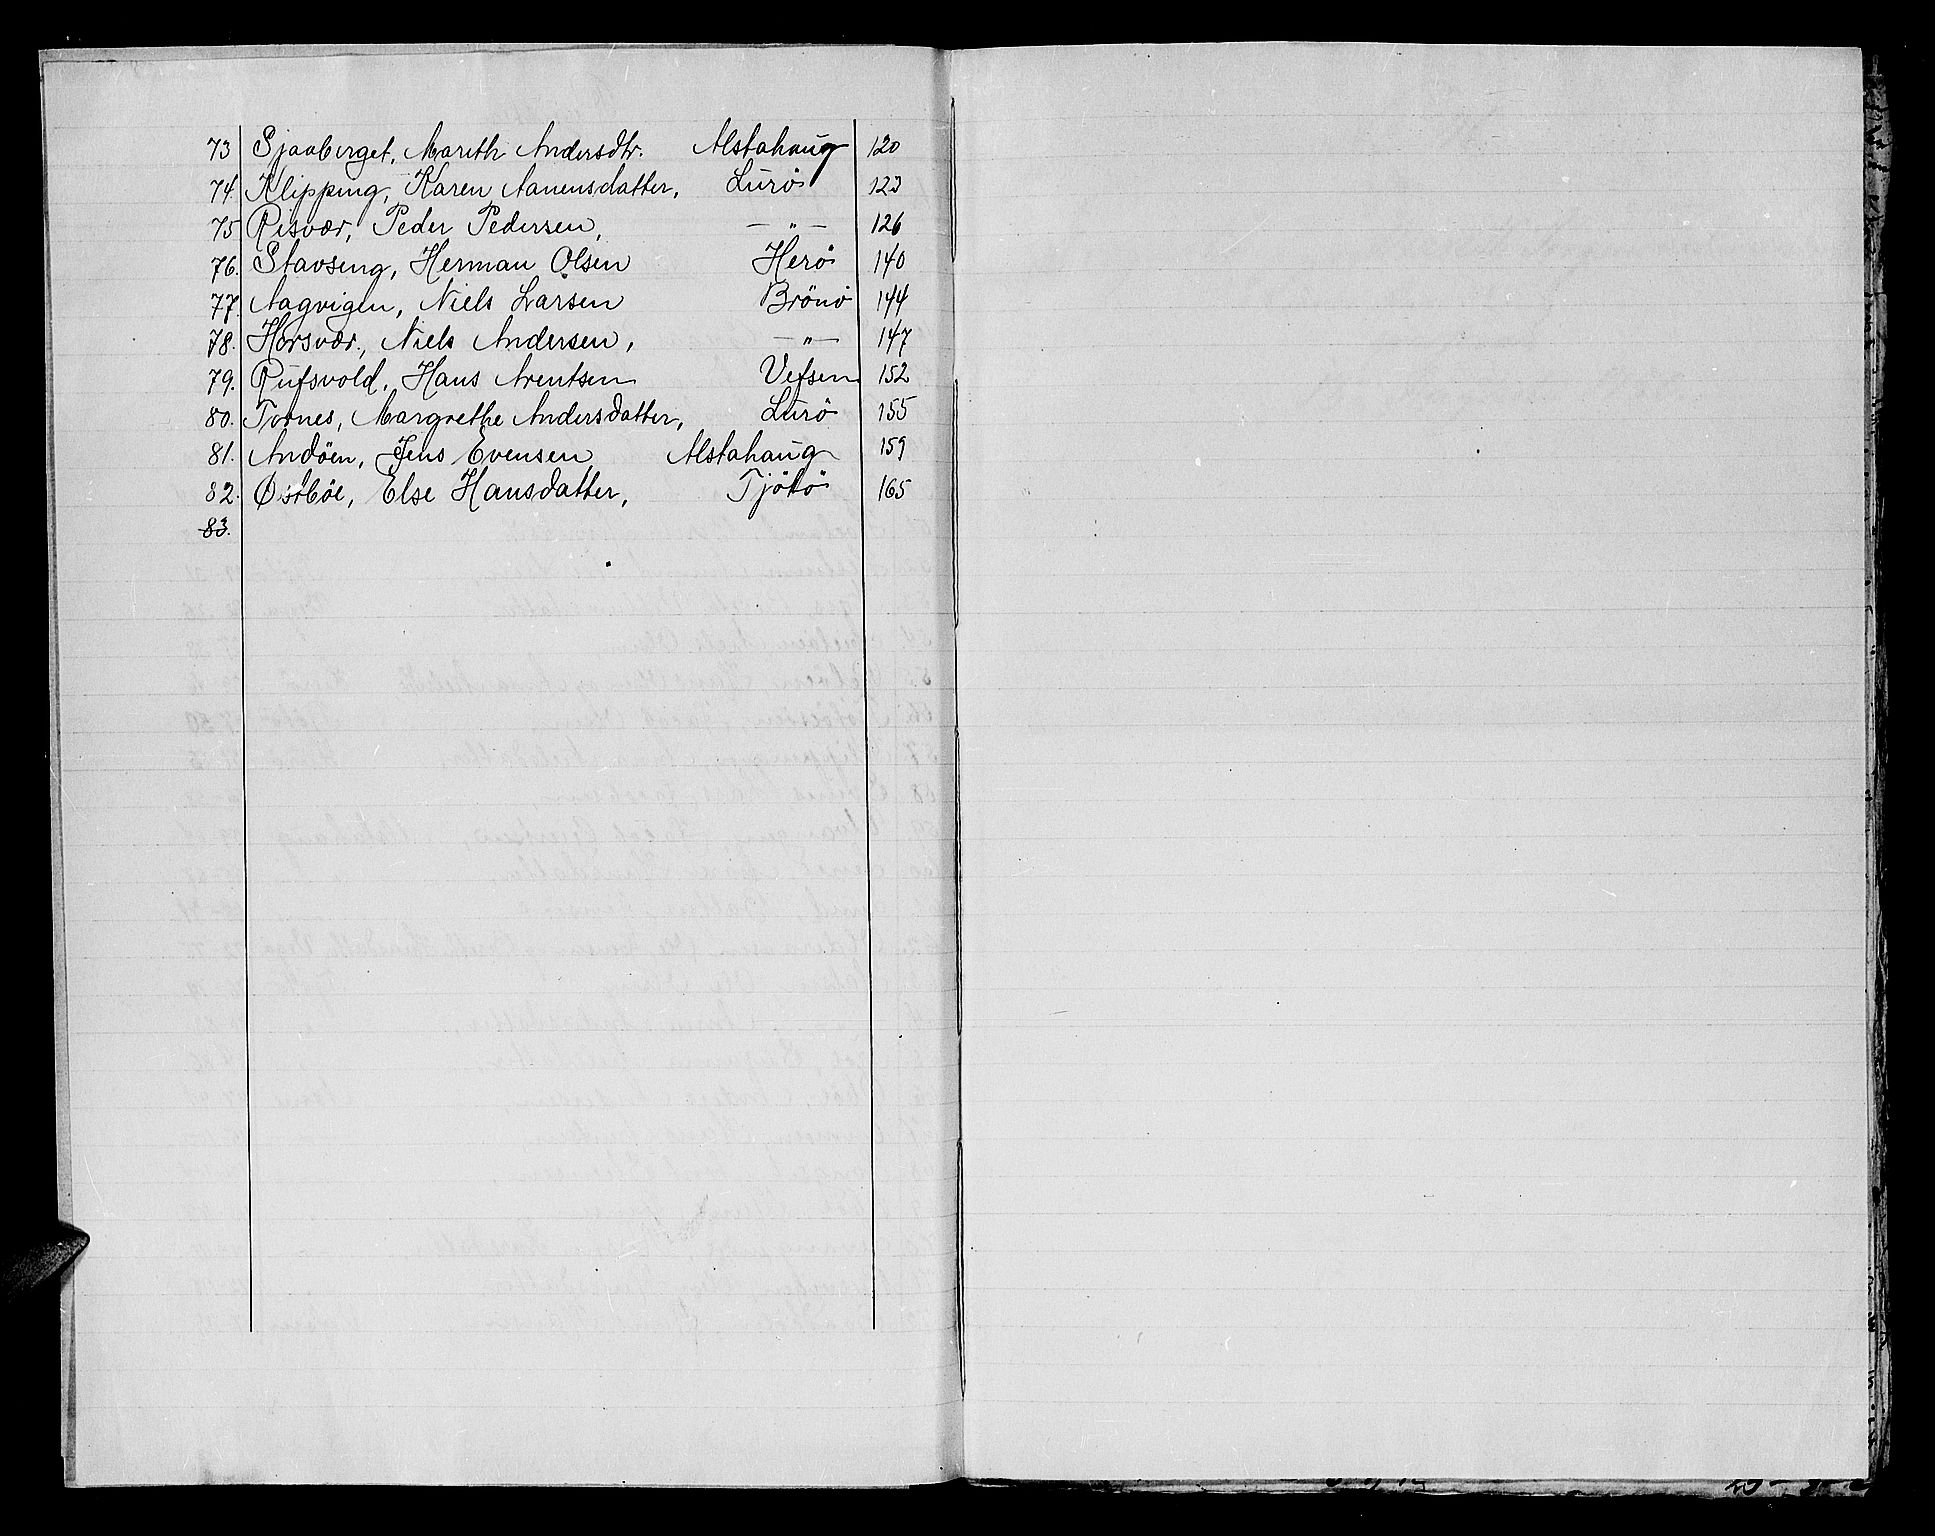 73 Sjaaberget, Marith Andersdtr. Alstahaug 120
74. Klipping, Karen Aanensdatter, Lurö 123
75 Risvær, Peder Pedersen, —„— 126
76. Stavseng, Herman Olsen Herö 140
77. Aagvigen, Niels Larsen Brönö 144
78. Horsvær, Niels Andersen, —„— 147
79. Rufsvold, Hans Arentsen Vefsen 152
80. Tornes, Margrethe Andersdatter, Lurö 155
81. Andöen, Jens Evensen Alstahaug 159
82. Østböe, Else Hansdatter, Tjötö 165
83.